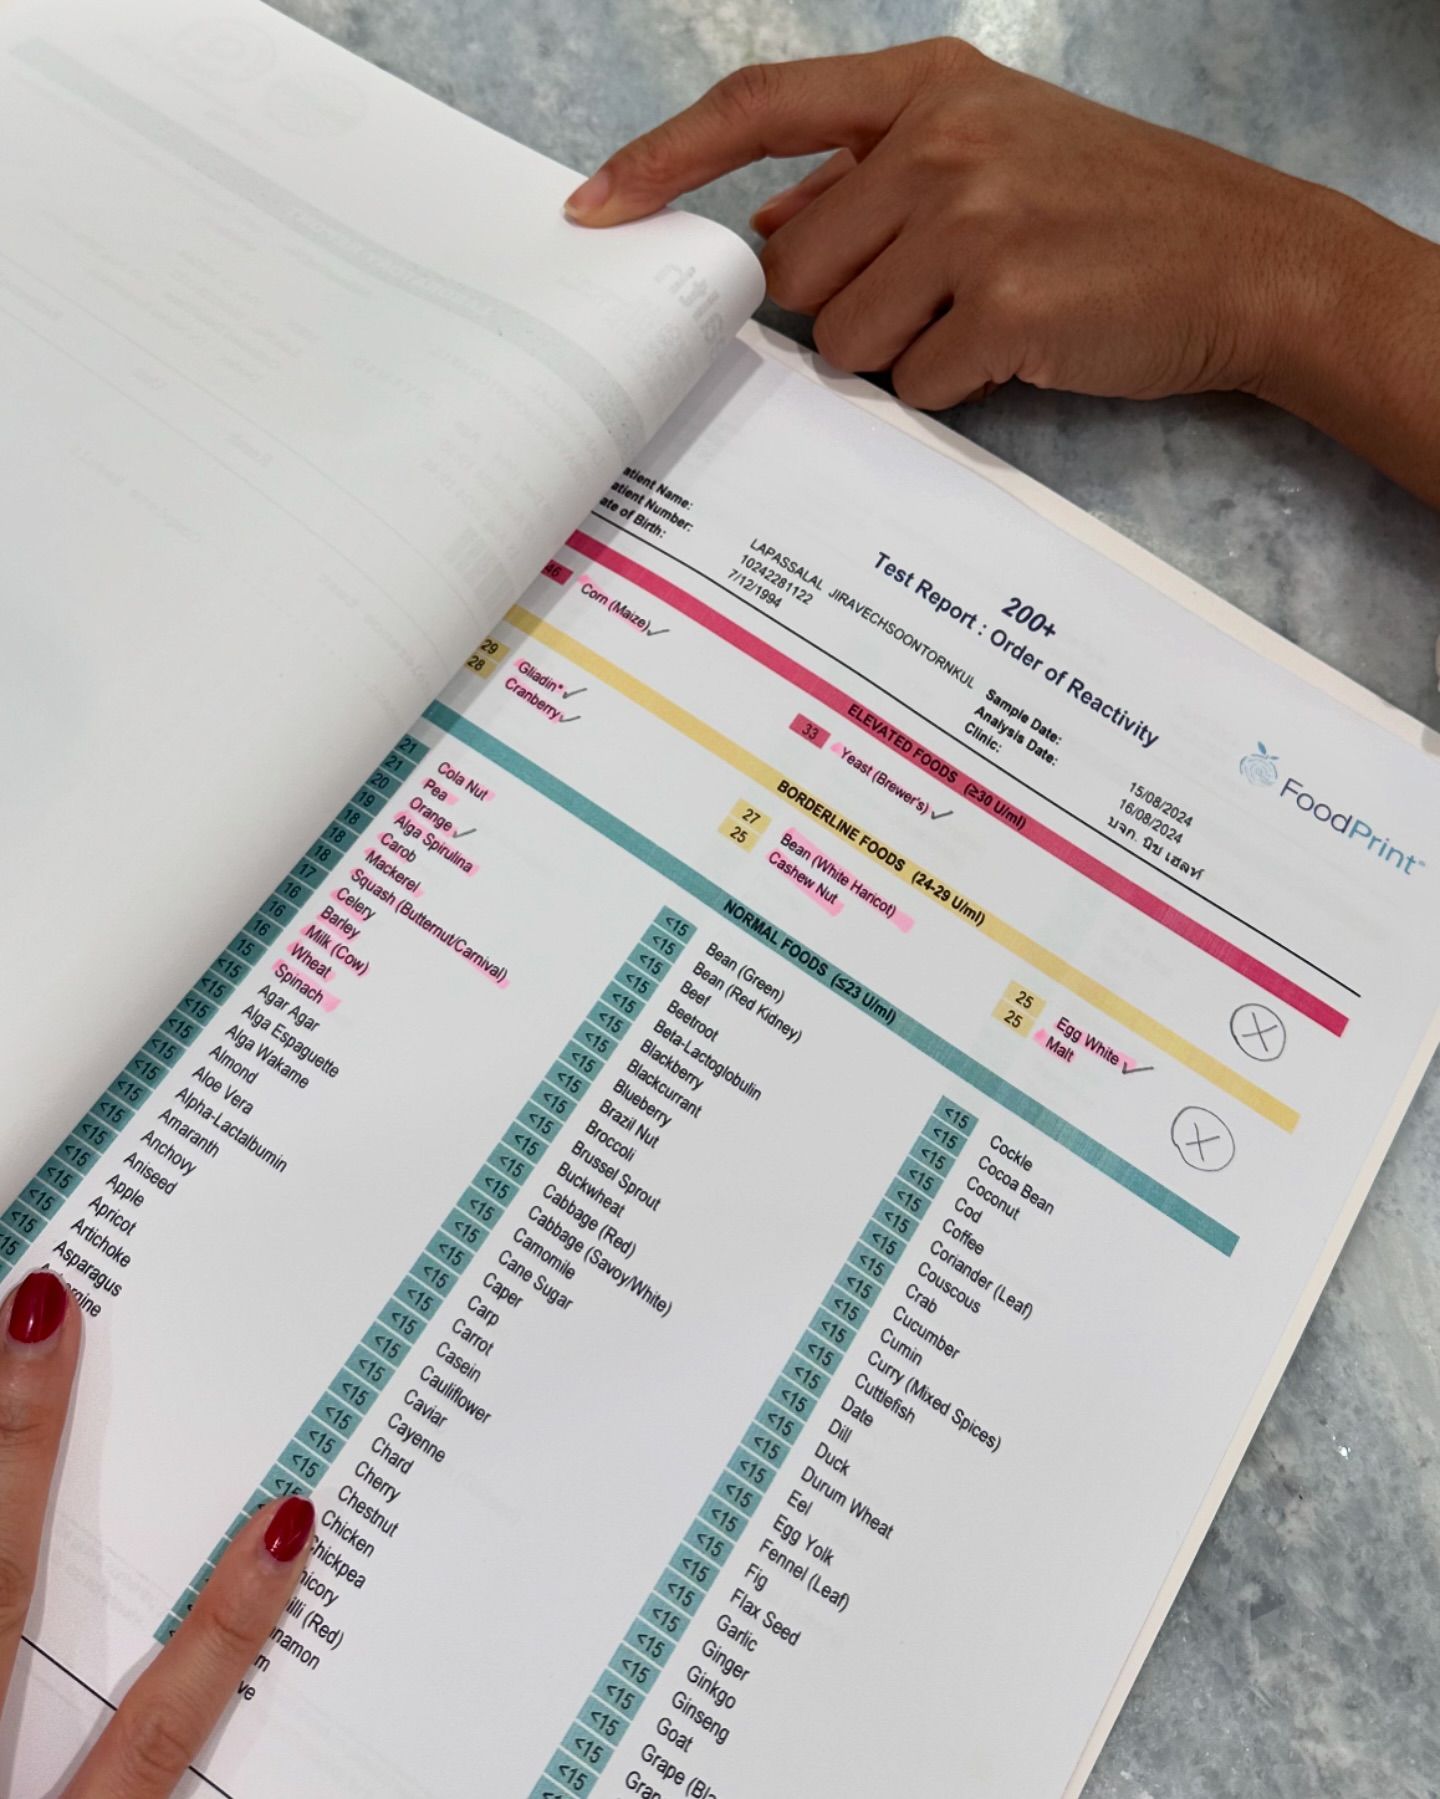 200+
Test Report : Order of Reactivity
FoodPrint
atient Name: LAPASSALAL JIRAVECHSOONTORNKUL
atient Number: 10242281122
ate of Birth: 7/12/1994
Sample Date: 15/08/2024
Analysis Date: 16/08/2024
Clinic: บจก. นิช เฮลท์
ELEVATED FOODS (≥30 U/ml)
46 Corn (Maize)
33 Yeast (Brewer's)
BORDERLINE FOODS (24-29 U/ml)
29 Gliadin*
28 Cranberry
27 Bean (White Haricot)
25 Cashew Nut
25 Egg White
25 Malt
NORMAL FOODS (≤23 U/ml)
21 Cola Nut
21 Pea
20 Orange
19 Alga Spirulina
18 Carob
18 Mackerel
18 Squash (Butternut/Carnival)
17 Celery
16 Barley
16 Milk (Cow)
16 Wheat
15 Spinach
<15 Agar Agar
<15 Alga Espaguette
<15 Alga Wakame
<15 Almond
<15 Aloe Vera
<15 Alpha-Lactalbumin
<15 Amaranth
<15 Anchovy
<15 Aniseed
<15 Apple
<15 Apricot
<15 Artichoke
<15 Asparagus
<15 Bean (Green)
<15 Bean (Red Kidney)
<15 Beef
<15 Beetroot
<15 Beta-Lactoglobulin
<15 Blackberry
<15 Blackcurrant
<15 Blueberry
<15 Brazil Nut
<15 Broccoli
<15 Brussel Sprout
<15 Buckwheat
<15 Cabbage (Red)
<15 Cabbage (Savoy/White)
<15 Camomile
<15 Cane Sugar
<15 Caper
<15 Carp
<15 Carrot
<15 Casein
<15 Cauliflower
<15 Caviar
<15 Cayenne
<15 Chard
<15 Cherry
<15 Chestnut
<15 Chicken
hickpea
icory
illi (Red)
namon
m
ve
<15 Cockle
<15 Cocoa Bean
<15 Coconut
<15 Cod
<15 Coffee
<15 Coriander (Leaf)
<15 Couscous
<15 Crab
<15 Cucumber
<15 Cumin
<15 Curry (Mixed Spices)
<15 Cuttlefish
<15 Date
<15 Dill
<15 Duck
<15 Durum Wheat
<15 Eel
<15 Egg Yolk
<15 Fennel (Leaf)
<15 Fig
<15 Flax Seed
<15 Garlic
<15 Ginger
<15 Ginkgo
<15 Ginseng
<15 Goat
<15 Grape (Bla
<15 Gra